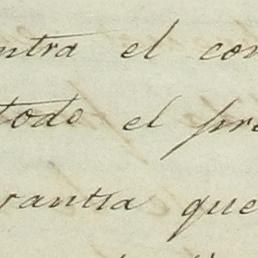 ntra el con
todo el pre
rantia que